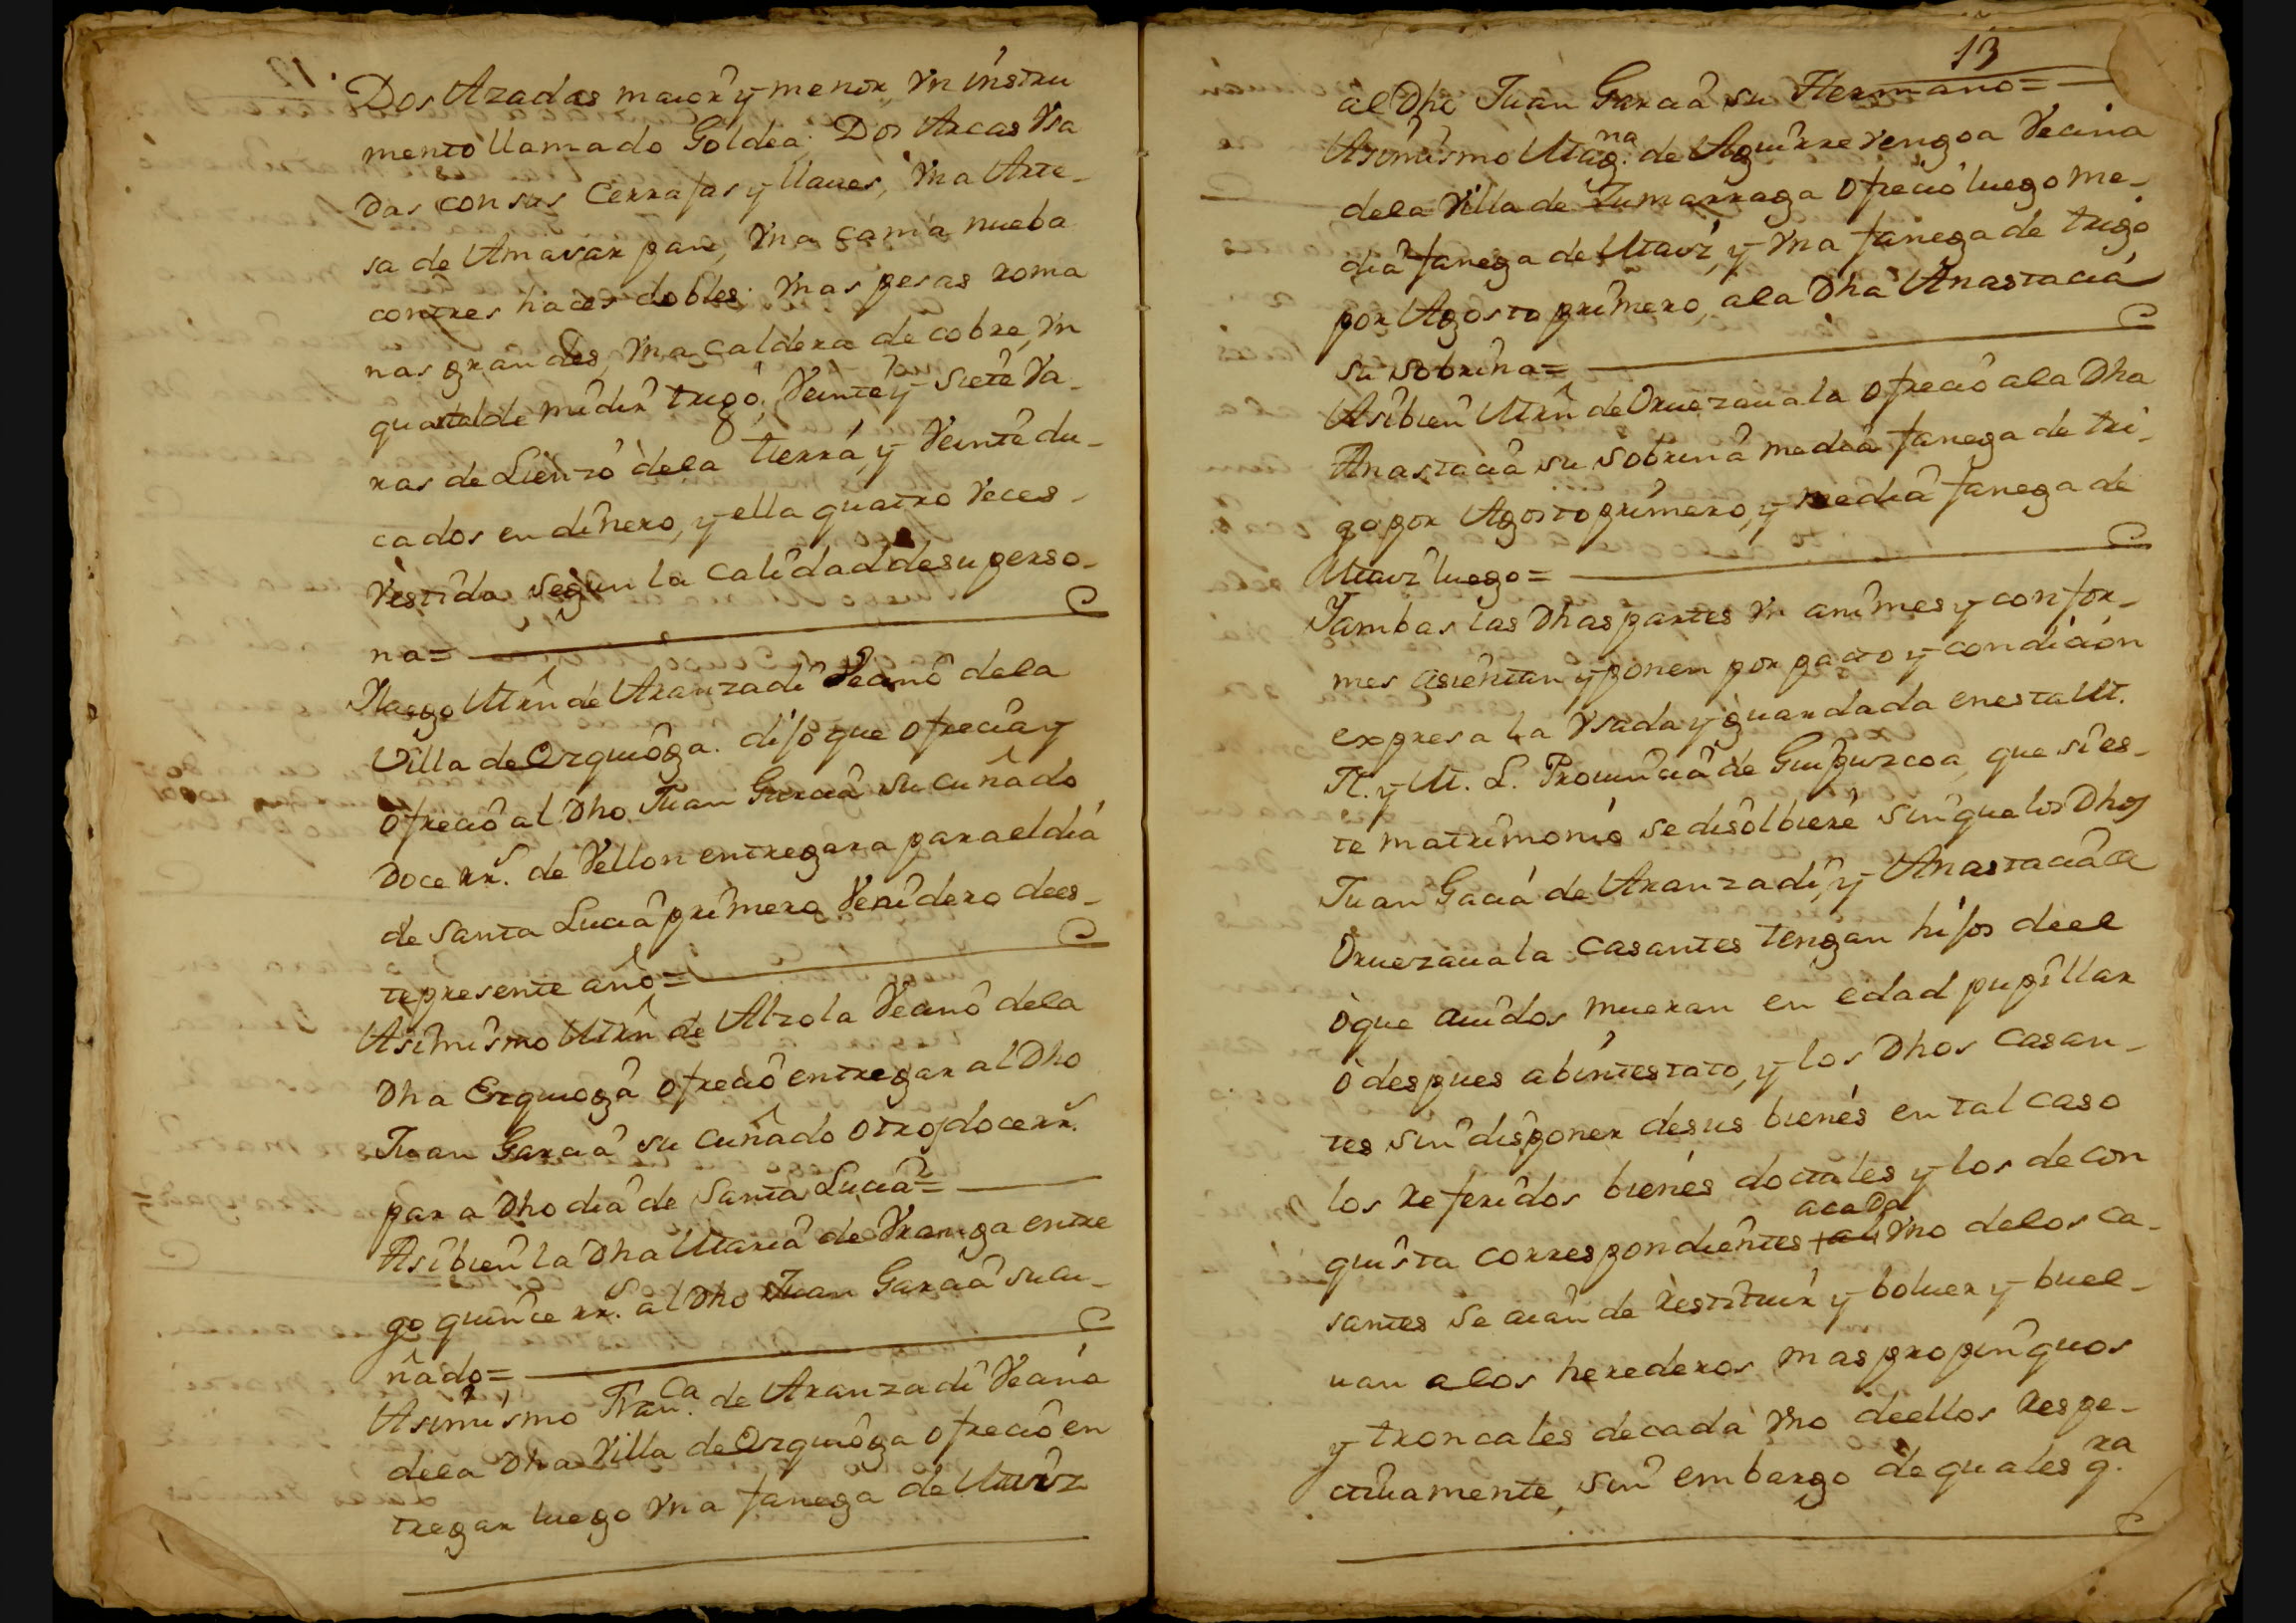 Dos Azadas maior y menor, Vn instru
mento llamado Goldea: Dos Arcas Vsa
das con sus Cerrajas y llaues, Vna Arte-
sa de Amasar pan, Vna cama nueba
contres haces dobles: Vnas pesas roma
nas grandes, Vna caldera de cobre, Vn
quartal de medir trigo: Veinte y Siete Va-
ras de Lienzo dela tierra, y Veinte du-
cados en dinero, y ella quatro Veces
Vestida segun la Calidad desu perso-
na=
Yluego Mrn de Aranzadi Vecino dela
Villa de Ezquioga. dijo que ofrecia y
ofrecio al Dho Juan Garcia su cuñado
Doce rr.s de Vellon entregara para el dia
de Santa Lucia primero Venidero de es-
te presente año=
Asimismo Mrn de Alzola Vecino dela
Dha Ezquioga ofrecio entregar al Dho
Juan Garcia su cuñado otros doce rr.s
para Dho dia de Santa Lucia=
Asibien la Dha Maria de Vranga entre
go quince rr.s al Dho Juan Garcia su cu-
ñado=
Asimismo Fran.ca de Aranzadi Vecina
dela Dha Villa de Ezquioga ofrecio en
tregar luego Vna fanega de Maiz
13
al Dho Juan Garcia su Hermano=
Asimismo Mag.na de Aguirre Vengoa Vecina
dela Villa de Zumarraga ofrecio luego me-
dia fanega de Maiz, y Vna fanega de trigo
por Agosto primero, ala Dha Anastacia
su sobrina=
Asibien Mrn de Oruezauala ofrecio ala Dha
Anastacia su sobrina media fanega de tri-
go por Agosto primero, y media fanega de
Maiz luego=
Yambas las Dhas partes Vn animes y confor-
mes asientan y ponen por pacto y condicion
expresa la Vsada y guardada en esta M.
N. y M. L. Prouincia de Guipuzcoa, que si es-
te matrimonio se disolbiere sin que los Dhos
Juan Gacia de Aranzadi, y Anastacia de
Oruezauala casantes tengan hijos de el
ò que auidos mueran en edad pupillar
ò despues abintestato, y los Dhos casan-
tes sin disponer de sus bienes en tal caso
los Referidos bienes doctales y los de con
acada
quista correspondientes +al+ Vno delos ca-
santes se aian de Restituir y boluer y buel-
uan alos herederos mas propinquos
y troncales de cada Vno deellos Respe-
ctiuamente, sin embargo de quales q.ra